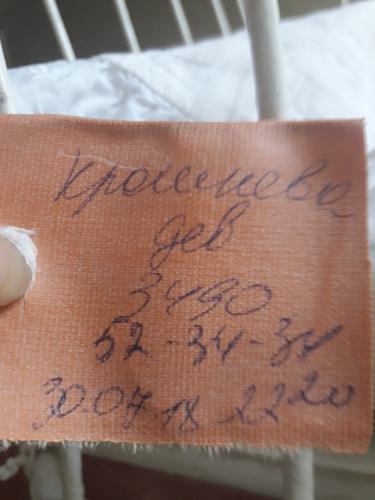 Крошнева
дев
3490
52-34-34
30.07.18 22 20